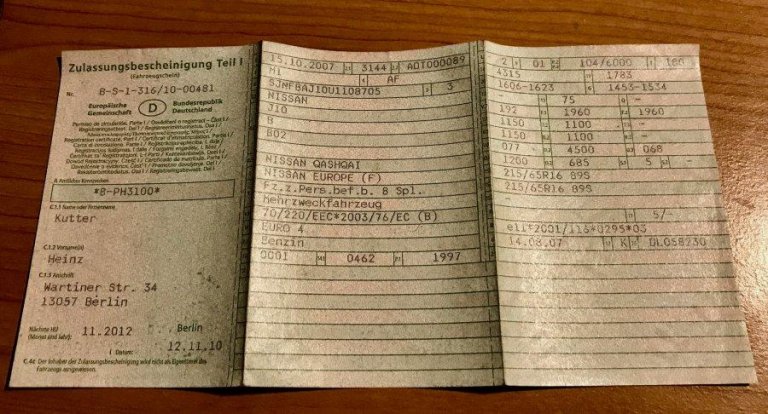 Zulassungsbescheinigung Teil I
(Fahrzeugschein)
Nr. B-S-1-316/10-00481
Europäische Gemeinschaft D Bundesrepublik Deutschland
A Amtliches Kennzeichen
*B-PH3100*
C.1.1 Name oder Firmenname
Kutter
C.1.2 Vorname(n)
Heinz
C.1.3 Anschrift
Wartiner Str. 34
13057 Berlin
Nächste HU
(Monat und Jahr)
11.2012 Berlin
I Datum: 12.11.10
C.4c Der Inhaber der Zulassungsbescheinigung wird nicht als Eigentümer des
Fahrzeugs ausgewiesen.
15.10.2007 3144 AOT000089
M1 AF
SJNFBAJ10U1108705 3
NISSAN
J10
B
B02
NISSAN QASHQAI
NISSAN EUROPE (F)
Fz.z.Pers.bef.b. 8 Spl.
Mehrzweckfahrzeug
70/220/EEC*2003/76/EC (B)
EURO 4
Benzin
0001 0462 1997
2 01 104/6000 180
4315 1783
1606-1623 1453-1534
75 -
192 1960 1960
1150 1100 -
1150 1100 -
077 4500 068
1200 685 5 -
215/65R16 89S
215/65R16 89S
5/-
e11*2001/116*0295*03
14.08.07 K DL058230